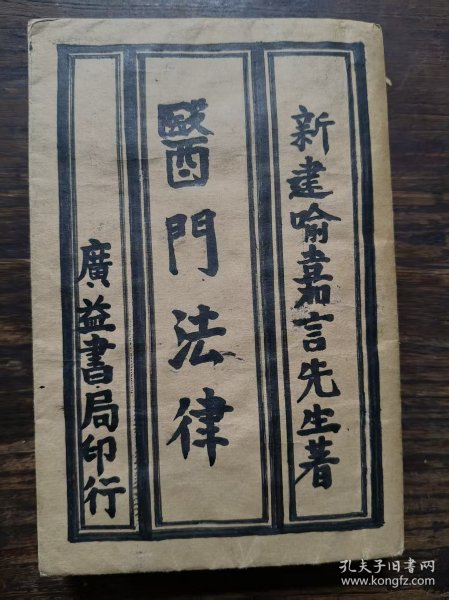 新建喻嘉言先生著
醫門法律
廣益書局印行
孔夫子旧书网
www.kongfz.com